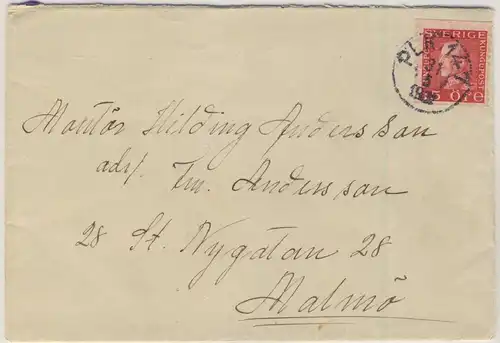 SVERIGE
KUNGLPOST
15 ÖRE
PLK 147
Montör Hilding Andersson
adr. Tm. Andersson
28 St. Nygatan 28
Malmö